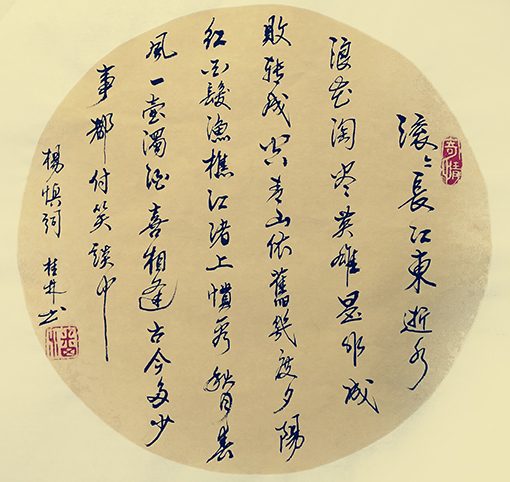 滚〻長江東逝水
浪花淘尽英雄是非成
敗转成空青山依舊幾度夕陽
红白髮漁樵江渚上慣看秋月春
風一壶濁酒喜相逢古今多少
事都付笑談中
楊慎词 桂井书